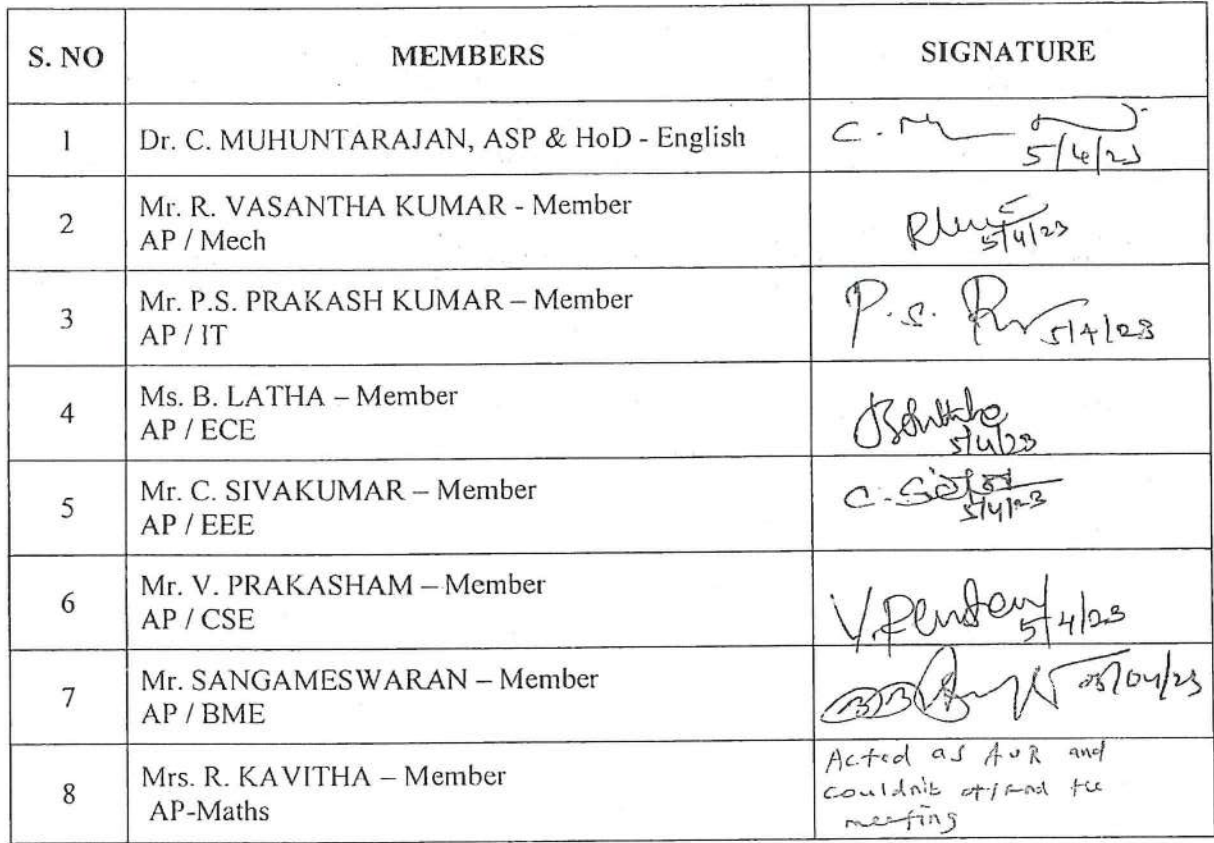 S. NO MEMBERS SIGNATURE
1 Dr. C. MUHUNTARAJAN, ASP & HoD - English C.
5/4/23
2 Mr. R. VASANTHA KUMAR - Member
AP / Mech 5/4/23
3 Mr. P.S. PRAKASH KUMAR – Member P.S.
AP / IT 5/4/23
4 Ms. B. LATHA – Member
AP / ECE 5/4/23
5 Mr. C. SIVAKUMAR – Member C.
AP / EEE 5/4/23
6 Mr. V. PRAKASHAM – Member
AP / CSE V. 5/4/23
7 Mr. SANGAMESWARAN – Member 05/04/23
AP / BME
8 Mrs. R. KAVITHA – Member
AP-Maths
Acted as AUR and
couldn't attend the
meeting